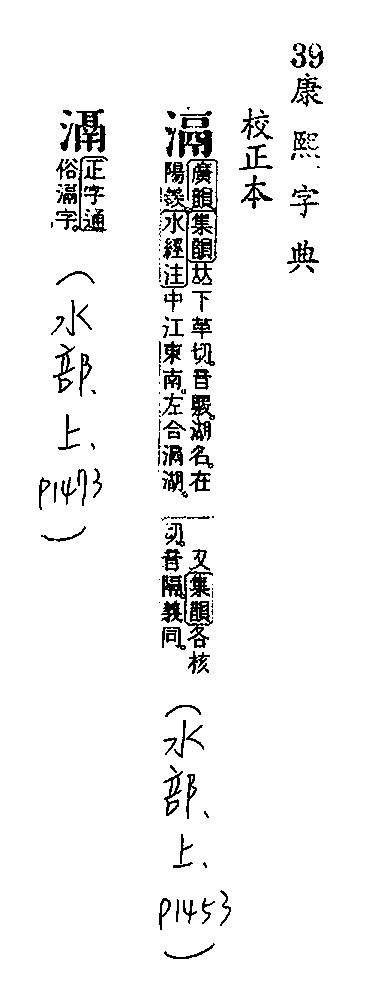 39康熙字典
校正本
滆
廣韻集韻𠀤下革切。音覈。湖名。在
陽羨。水經注中江東南。左合滆湖。
又集韻各核
切。音隔。義同。
(水部、上、P1453)
滿
正字通
俗滿字。
(水部、上、P1473)